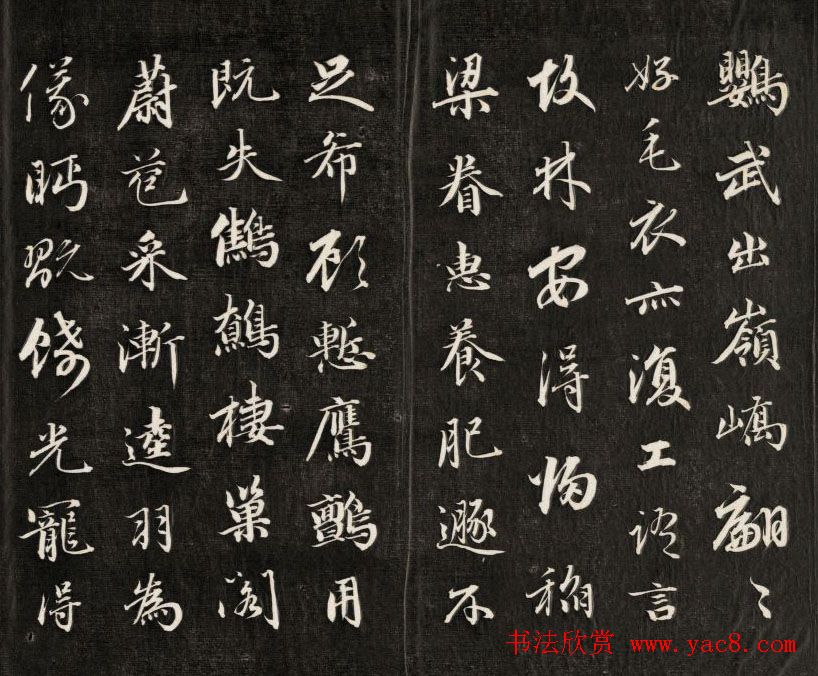 鸚武出嶺嶠翩〻
好毛衣亦復工語言
故林安得歸稻
梁眷惠養肥遯不
足希顧慙鷹鸇用
既失鷦鷯棲巢閣
蔚苞采漸逵羽為
儀眄光寵得
书法欣赏 www.yac8.com